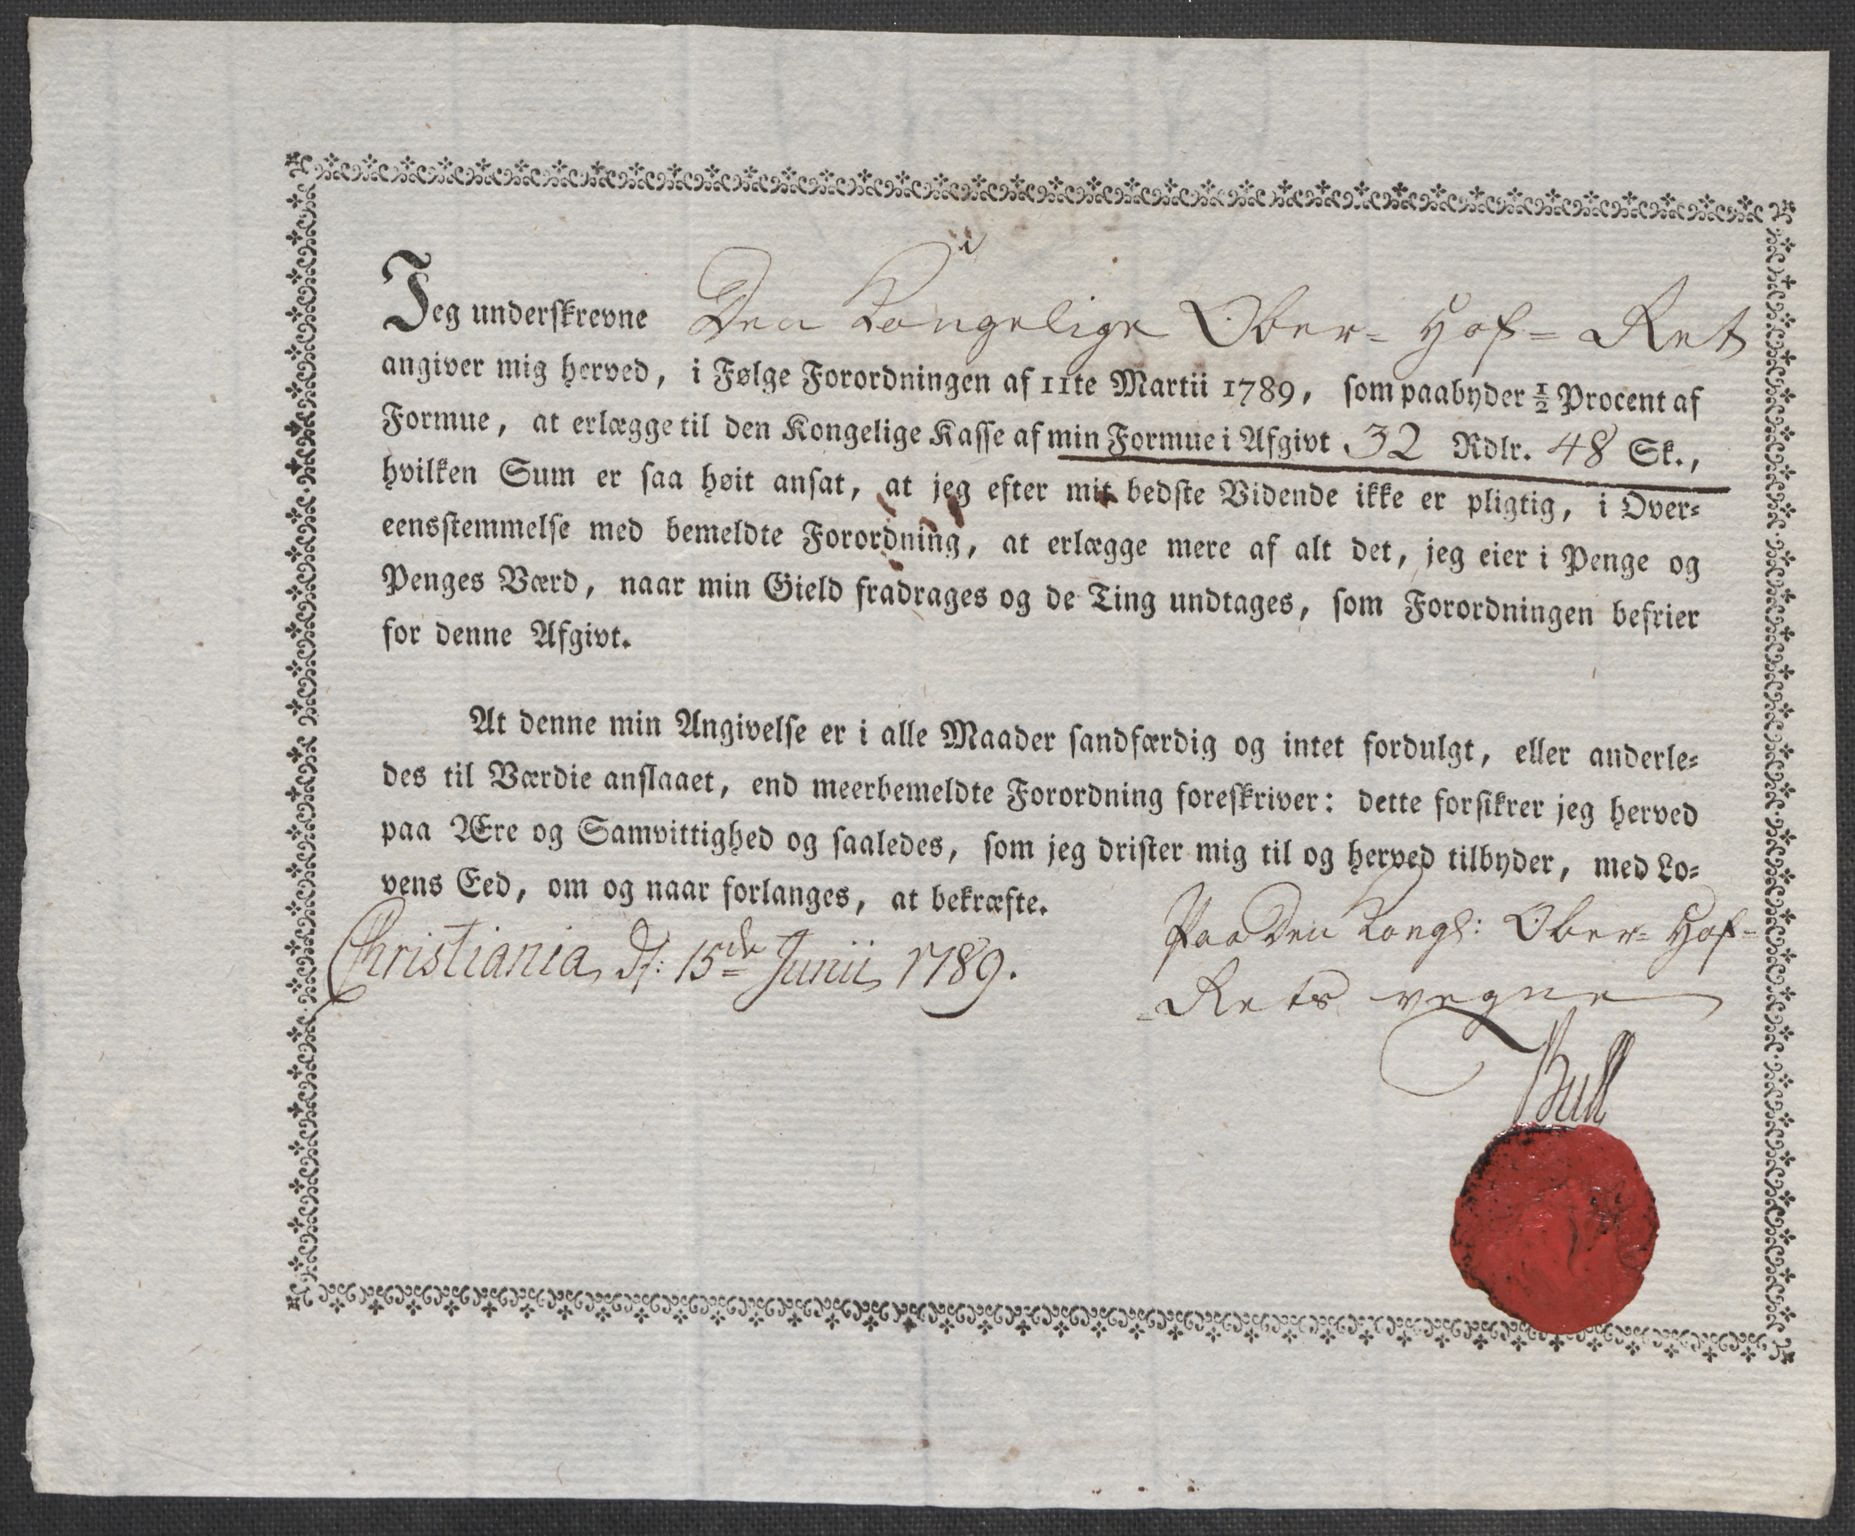 Jeg underskrevne Den Kongelige Ober- Hof- Ret
angiver mig herved, i Følge Forordningen af 11te Martii 1789, som paabyder ½ Procent af
Formue, at erlægge til den Kongelige Kasse af min Formue i Afgivt 32 Rdlr. 48 Sk.,
hvilken Sum er saa høit ansat, at jeg efter mit bedste Vidende ikke er pligtig, i Over-
eensstemmelse med bemeldte Forordning, at erlægge mere af alt det, jeg eier i Penge og
Penges Værd, naar min Gield fradrages og de Ting undtages, som Forordningen befrier
for denne Afgivt.
At denne min Angivelse er i alle Maader sandfærdig og intet fordulgt, eller anderle-
des til Værdie anslaaet, end meerbemeldte Forordning foreskriver: dette forsikrer jeg herved
paa Ære og Samvittighed og saaledes, som jeg drister mig til og herved tilbyder, med Lo-
vens Eed, om og naar forlanges, at bekræfte.
Christiania, d: 15de Junii 1789.
Paa Den Kongl: Ober- Hof-
-Rets vegne
Bull